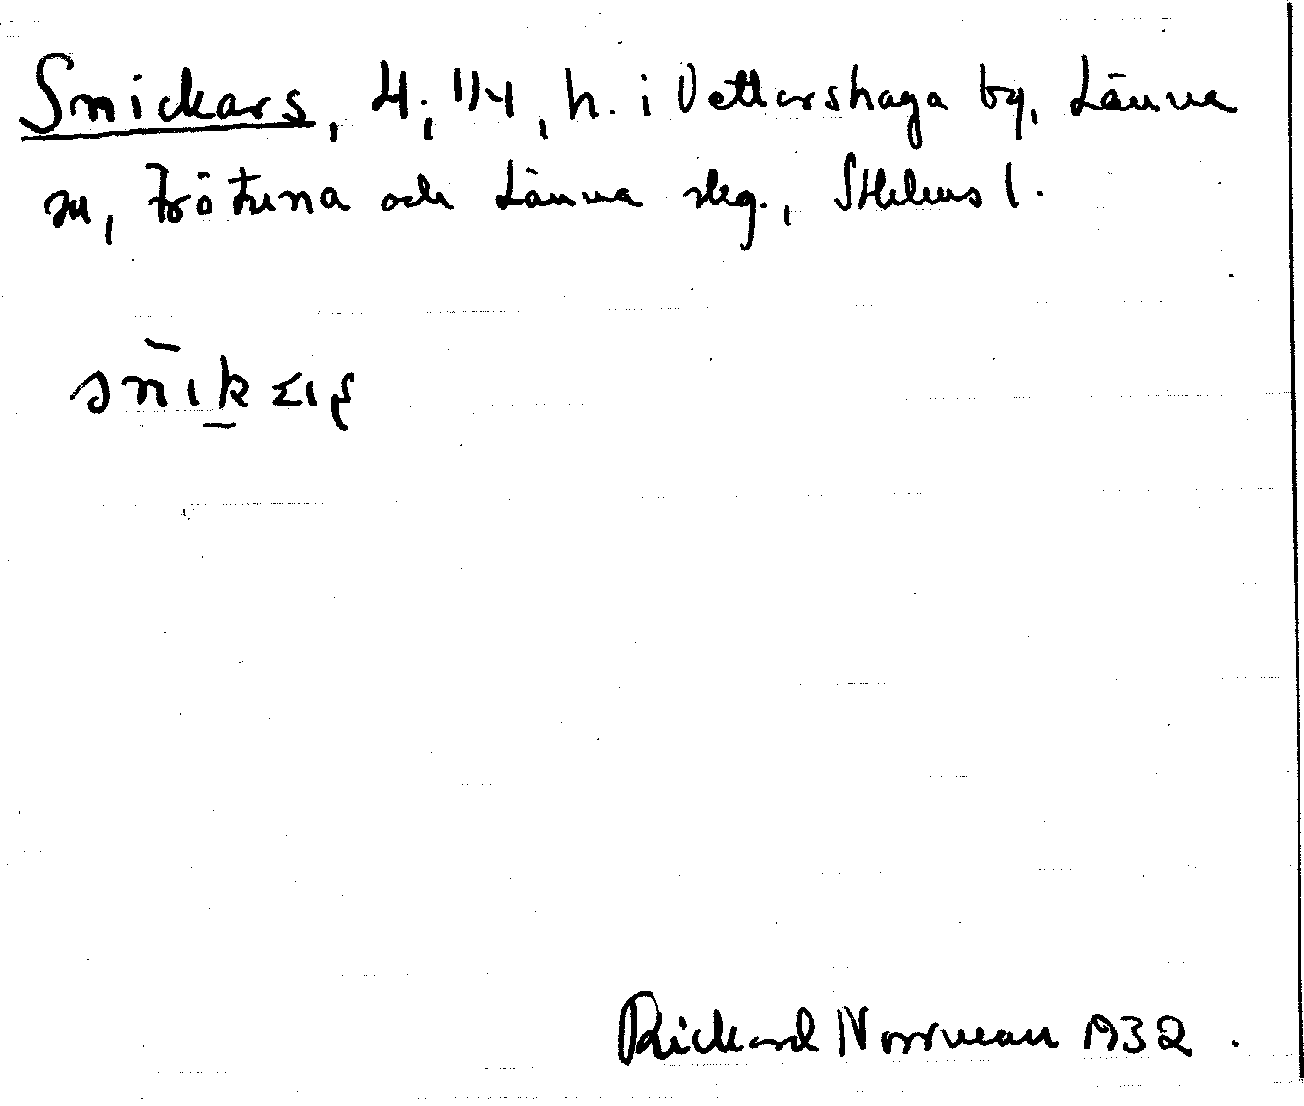 Snickars, 4, 1/4, h. i Vettershaga by, Länna
sn, Frötuna och Länna skg., Sthlms l.
Rickard Norrman 1932.